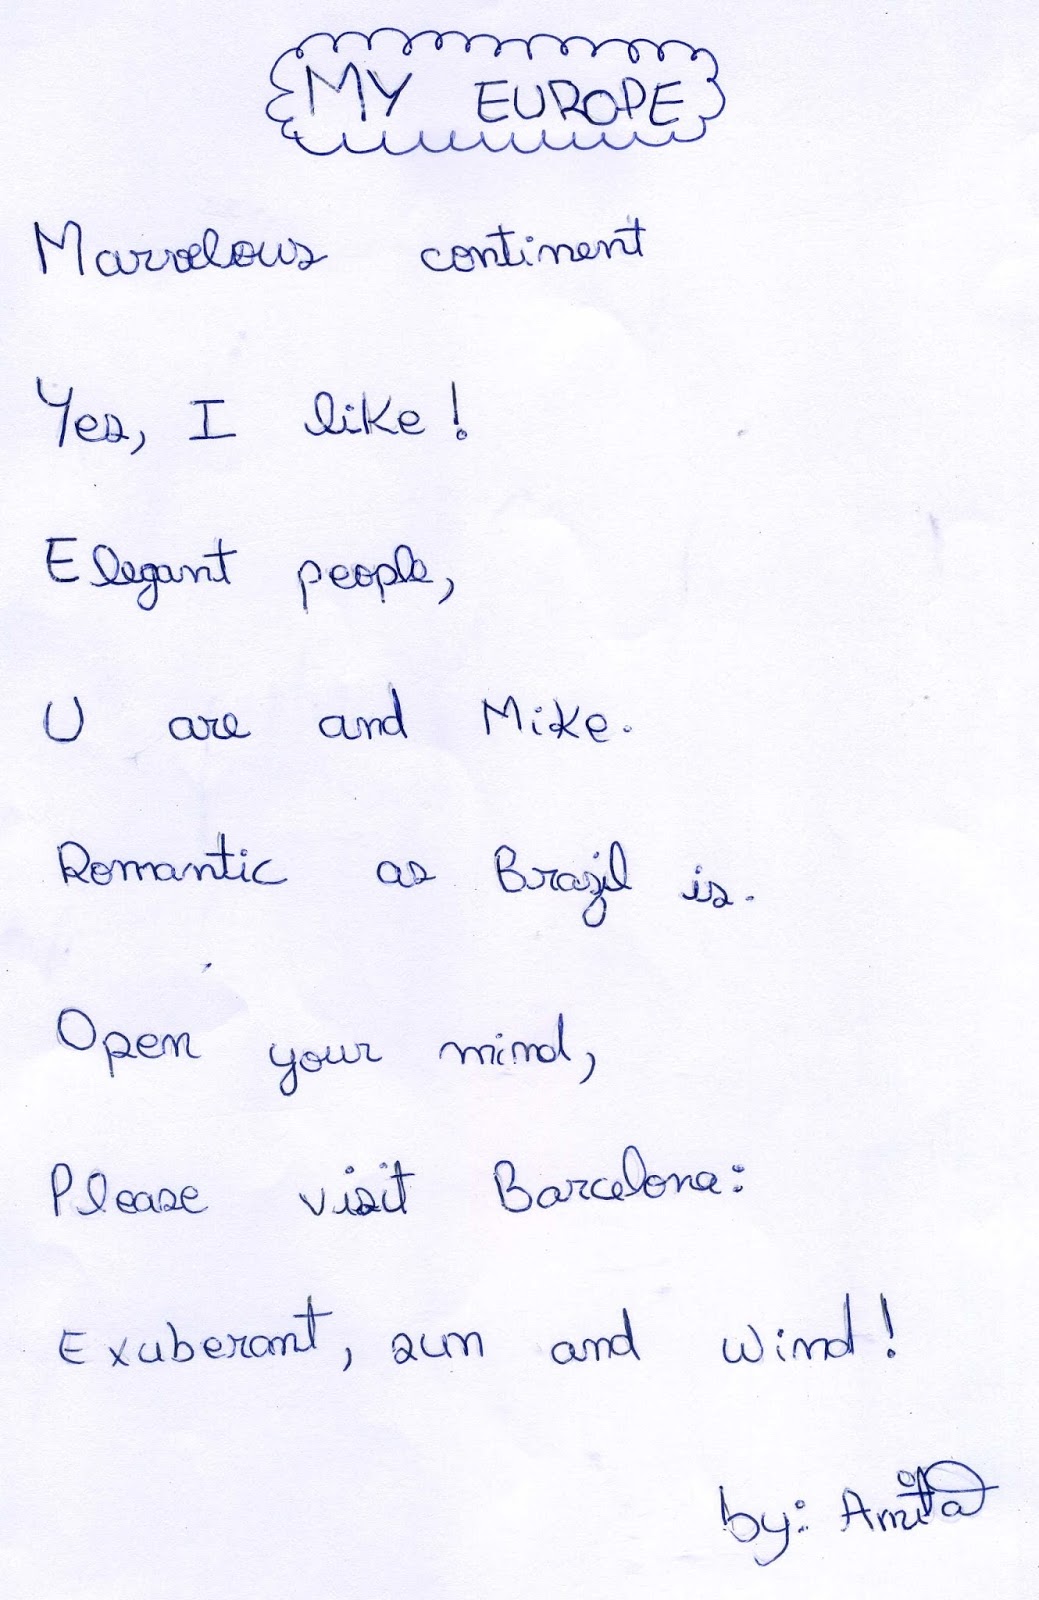 MY EUROPE
Marvelous continent
Yes, I like!
Elegant people,
U are and Mike.
Romantic as Brazil is.
Open your mind,
Please visit Barcelona:
Exuberant, sun and wind!
by: Anita